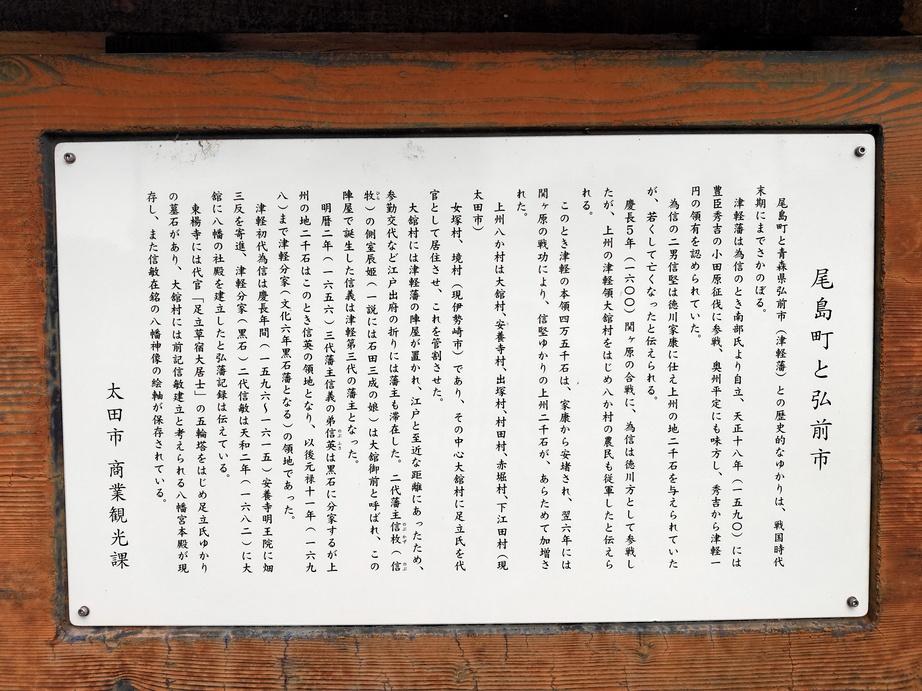 尾島町と弘前市
尾島町と青森県弘前市（津軽藩）との歴史的なゆかりは、戦国時代
末期にまでさかのぼる。
津軽藩は為信のとき南部氏より自立、天正十八年（一五九〇）には
豊臣秀吉の小田原征伐に参戦、奥州平定にも味方し、秀吉から津軽一
円の領有を認められていた。
為信の二男信堅は徳川家康に仕え上州の地二千石を与えられていた
が、若くして亡くなったと伝えられる。
慶長５年（一六〇〇）関ヶ原の合戦に、為信は徳川方として参戦し
たが、上州の津軽領大舘村をはじめ八か村の農民も従軍したと伝えら
れる。
このとき津軽の本領四万五千石は、家康から安堵され、翌六年には
関ヶ原の戦功により、信堅ゆかりの上州二千石が、あらためて加増さ
れた。
上州八か村は大舘村、安養寺村、出塚村、村田村、赤堀村、下江田村（現
太田市）
女塚村、境村（現伊勢崎市）であり、その中心大舘村に足立氏を代
官として居住させ、これを管割させた。
大舘村には津軽藩の陣屋が置かれ、江戸と至近な距離にあったため、
参勤交代など江戸出府の折りには藩主も滞在した。二代藩主信枚（信
牧）の側室辰姫（一説には石田三成の娘）は大舘御前と呼ばれ、この
陣屋で誕生した信義は津軽第三代の藩主となった。
明暦二年（一六五六）三代藩主信義の弟信英は黒石に分家するが上
州の地二千石はこのとき信英の領地となり、以後元禄十一年（一六九
八）まで津軽分家（文化六年黒石藩となる）の領地であった。
津軽初代為信は慶長年間（一五九六～一六一五）安養寺明王院に畑
三反を寄進、津軽分家（黒石）二代信敏は天和二年（一六八二）に大
舘に八幡の社殿を建立したと弘藩記録は伝えている。
東楊寺には代官「足立草宿大居士」の五輪塔をはじめ足立氏ゆかり
の墓石があり、大舘村には前記信敏建立と考えられる八幡宮本殿が現
存し、また信敏在銘の八幡神像の絵軸が保存されている。
太田市 商業観光課